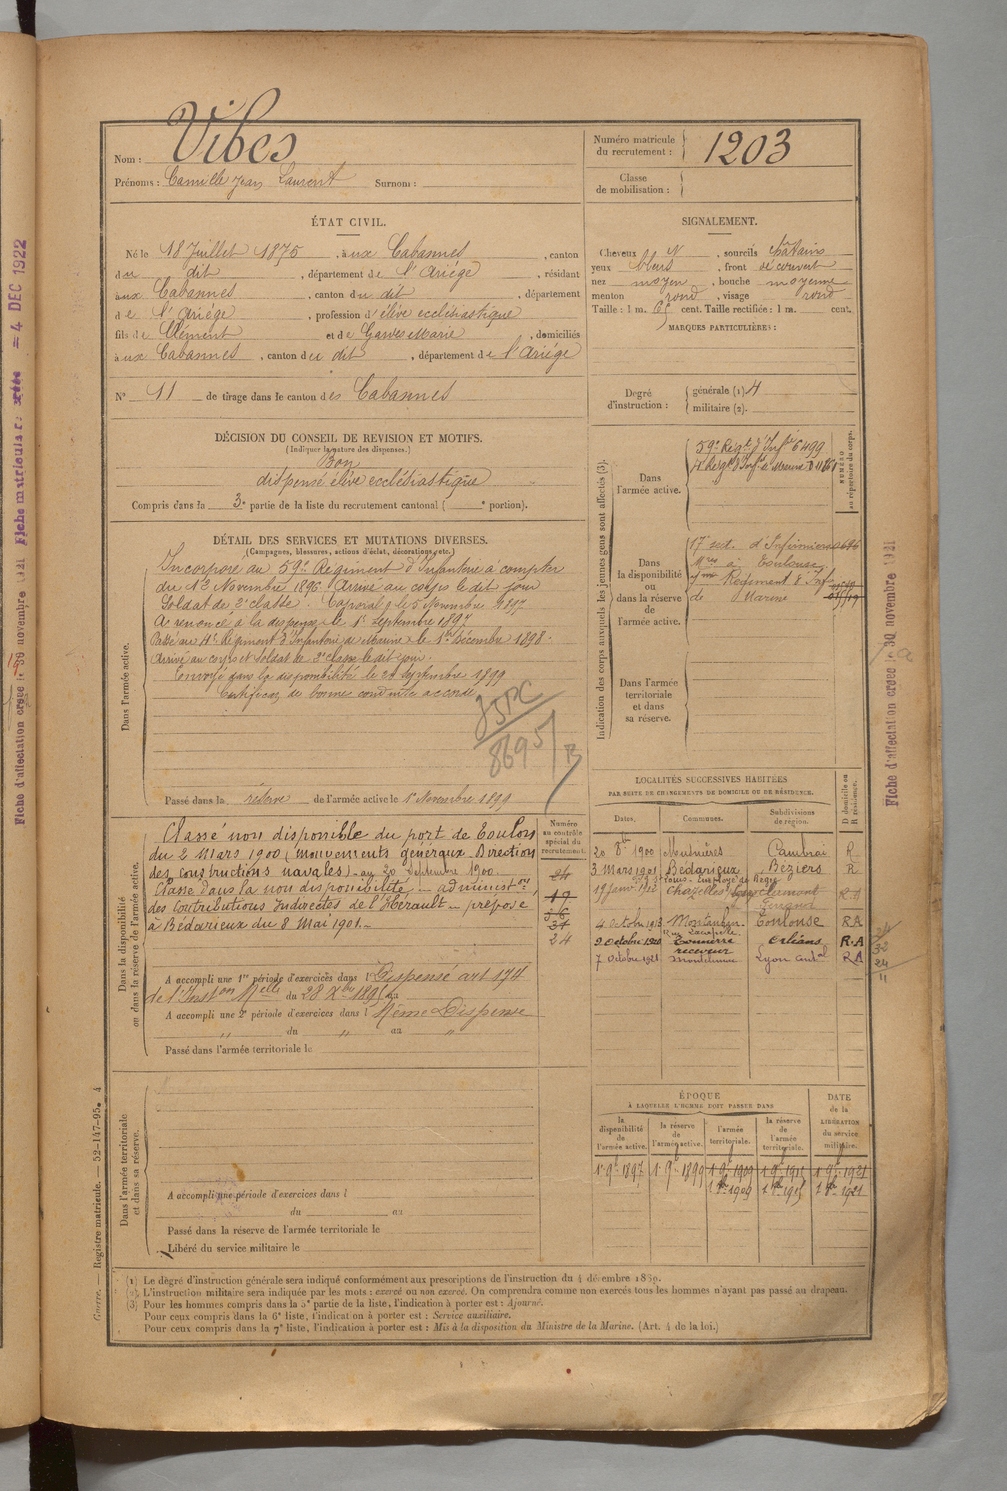 Nom : Vibes
Prénoms : Camille Jean Laurent Surnom :
Numéro matricule du recrutement : 1203
Classe de mobilisation :
ÉTAT CIVIL.
Né le 18 Juillet 1875, à ux Cabannes, canton
du dit, département de l'Ariège, résidant
à ux Cabannes, canton du dit, département
de l'Ariège, profession d'élève ecclésiastique
fils de Clément et de Marie, domiciliés
à ux Cabannes, canton du dit, département de l'Ariège
N° 11 de tirage dans le canton des Cabannes
SIGNALEMENT.
Cheveux N, sourcils châtains
yeux bleus, front découvert
nez moyen, bouche moyenne
menton rond, visage rond
Taille : 1 m. 65 cent. Taille rectifiée : 1 m. cent.
MARQUES PARTICULIÈRES :
Degré d'instruction : générale (1) 4
militaire (2).
DÉCISION DU CONSEIL DE REVISION ET MOTIFS.
(Indiquer la nature des dispenses.)
Bon
dispensé élève ecclésiastique
Compris dans la 3e partie de la liste du recrutement cantonal ( e portion).
DÉTAIL DES SERVICES ET MUTATIONS DIVERSES.
(Campagnes, blessures, actions d'éclat, décorations, etc.)
Dans l'armée active.
Incorporé au 59e Régiment d'Infanterie à compter
du 13 Novembre 1896. Arrivé au corps le dit jour
Soldat de 2e classe. Caporal le 5 Novembre 1897
A renoncé à la dispense le 1er septembre 1897
Passé au 4e Régiment d'Infanterie de Marine le 1er Décembre 1898.
Arrivé au corps et Soldat de 2e classe le dit jour.
Envoyé dans la disponibilité le 20 Septembre 1899
Certificat de bonne conduite accordé
8695
Passé dans la réserve de l'armée active le 1er Novembre 1899
Indication des corps auxquels les jeunes gens sont affectés (3).
NUMÉRO au répertoire du corps.
Dans l'armée active.
59e Régt d'Infie 6499
4e Regt d'Inf. de Marine
Dans la disponibilité ou dans la réserve de l'armée active.
17e sect. d'Infirmiers
Mres à Toulouse
Régiment d'Inf
de Marine
Dans l'armée territoriale et dans sa réserve.
Dans la disponibilité ou dans la réserve de l'armée active.
Classé non disponible du port de Toulon
du 2 Mars 1900 (mouvements généraux - Direction
des constructions navales) - au 20 Septembre 1900.
Classé dans la non disponibilité - administon
des Contributions Indirectes de l'Hérault - préposé
à Bédarieux du 8 Mai 1901.
A accompli une 1re période d'exercices dans l Dispensé art 174
de l'Inston Melle du 28 Xbre 1895 au
A accompli une 2e période d'exercices dans l Même Dispense
" du " au "
Passé dans l'armée territoriale le
Numéro au contrôle spécial du recrutement.
17
24
LOCALITÉS SUCCESSIVES HABITÉES
PAR SUITE DE CHANGEMENTS DE DOMICILE OU DE RÉSIDENCE.
Dates. Communes. Subdivisions de région. D domicile ou R résidence.
20 8bre 1900 Cambrai R
3 Mars 1901 Bédarieux Béziers R
4 Octobre 1913 Montauban Toulouse RA
9 Octobre 1920 Tonnerre Orléans R.A
receveur
7 Octobre 1921 Lyon RA
32
24
11
ÉPOQUE
À LAQUELLE L'HOMME DOIT PASSER DANS
la disponibilité de l'armée active. la réserve de l'armée active. l'armée territoriale. la réserve de l'armée territoriale. DATE de la LIBÉRATION du service militaire.
1er 9bre 1897 1er 9bre 1899 1er 9bre 1909 1er 9bre 1915 1er 9bre 1921
1er 8bre 1909 1er 8bre 1915 1er 8bre 1921
Dans l'armée territoriale et dans sa réserve.
A accompli une période d'exercices dans l
du au
Passé dans la réserve de l'armée territoriale le
Libéré du service militaire le
(1) Le degré d'instruction générale sera indiqué conformément aux prescriptions de l'instruction du 4 décembre 1889.
(2) L'instruction militaire sera indiquée par les mots : exercé ou non exercé. On comprendra comme non exercés tous les hommes n'ayant pas passé au drapeau.
(3) Pour les hommes compris dans la 5e partie de la liste, l'indication à porter est : Ajourné.
Pour ceux compris dans la 6e liste, l'indication à porter est : Service auxiliaire.
Pour ceux compris dans la 7e liste, l'indication à porter est : Mis à la disposition du Ministre de la Marine. (Art. 4 de la loi.)
Guerre. — Registre matricule. — 52-147-95. 4
Fiche d'affectation créée le 30 novembre 1921
Fiche d'affectation créée le 30 novembre 1921 Fiche matricule
4 DEC 1922